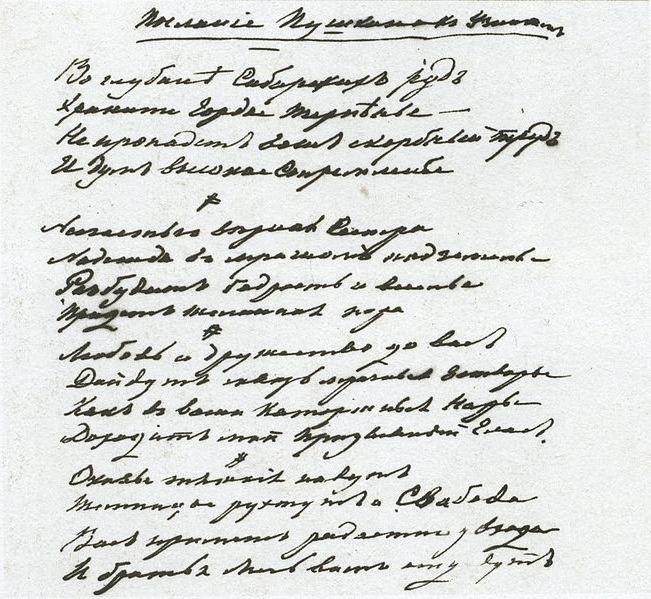 Посланіе Пушкина къ
Во глубинѣ Сибирскихъ рудъ
Храните Гордое терпѣнье —
Не пропадетъ вашъ скорбный трудъ
И думъ высокое стремленье
Несчастью вѣрная Сестра
Надежда въ мрачномъ подземелье
Разбудитъ бодрость и веселье
Придетъ желанная пора
Любовь и дружество до васъ
Дойдутъ сквозь мрачные затворы
Какъ въ ваши каторжные норы
Доходитъ мой призывный Гласъ.
Оковы тяжкія падутъ
Темницы рухнутъ а Свобода
Васъ приметъ радостно у входа
И братья мечь вамъ